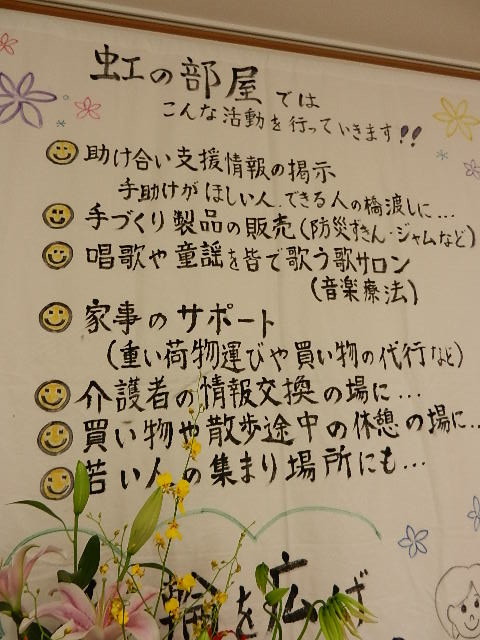 虹の部屋では
こんな活動を行っていきます!!
助け合い支援情報の掲示
手助けがほしい人、できる人の橋渡しに...
手づくり製品の販売(防災ずきん・ジャムなど)
唱歌や童謡を皆で歌う歌サロン
(音楽療法)
家事のサポート
(重い荷物運びや買い物の代行など)
介護者の情報交換の場に...
買い物や散歩途中の休憩の場に...
若い人の集まり場所にも...
輪を広げ